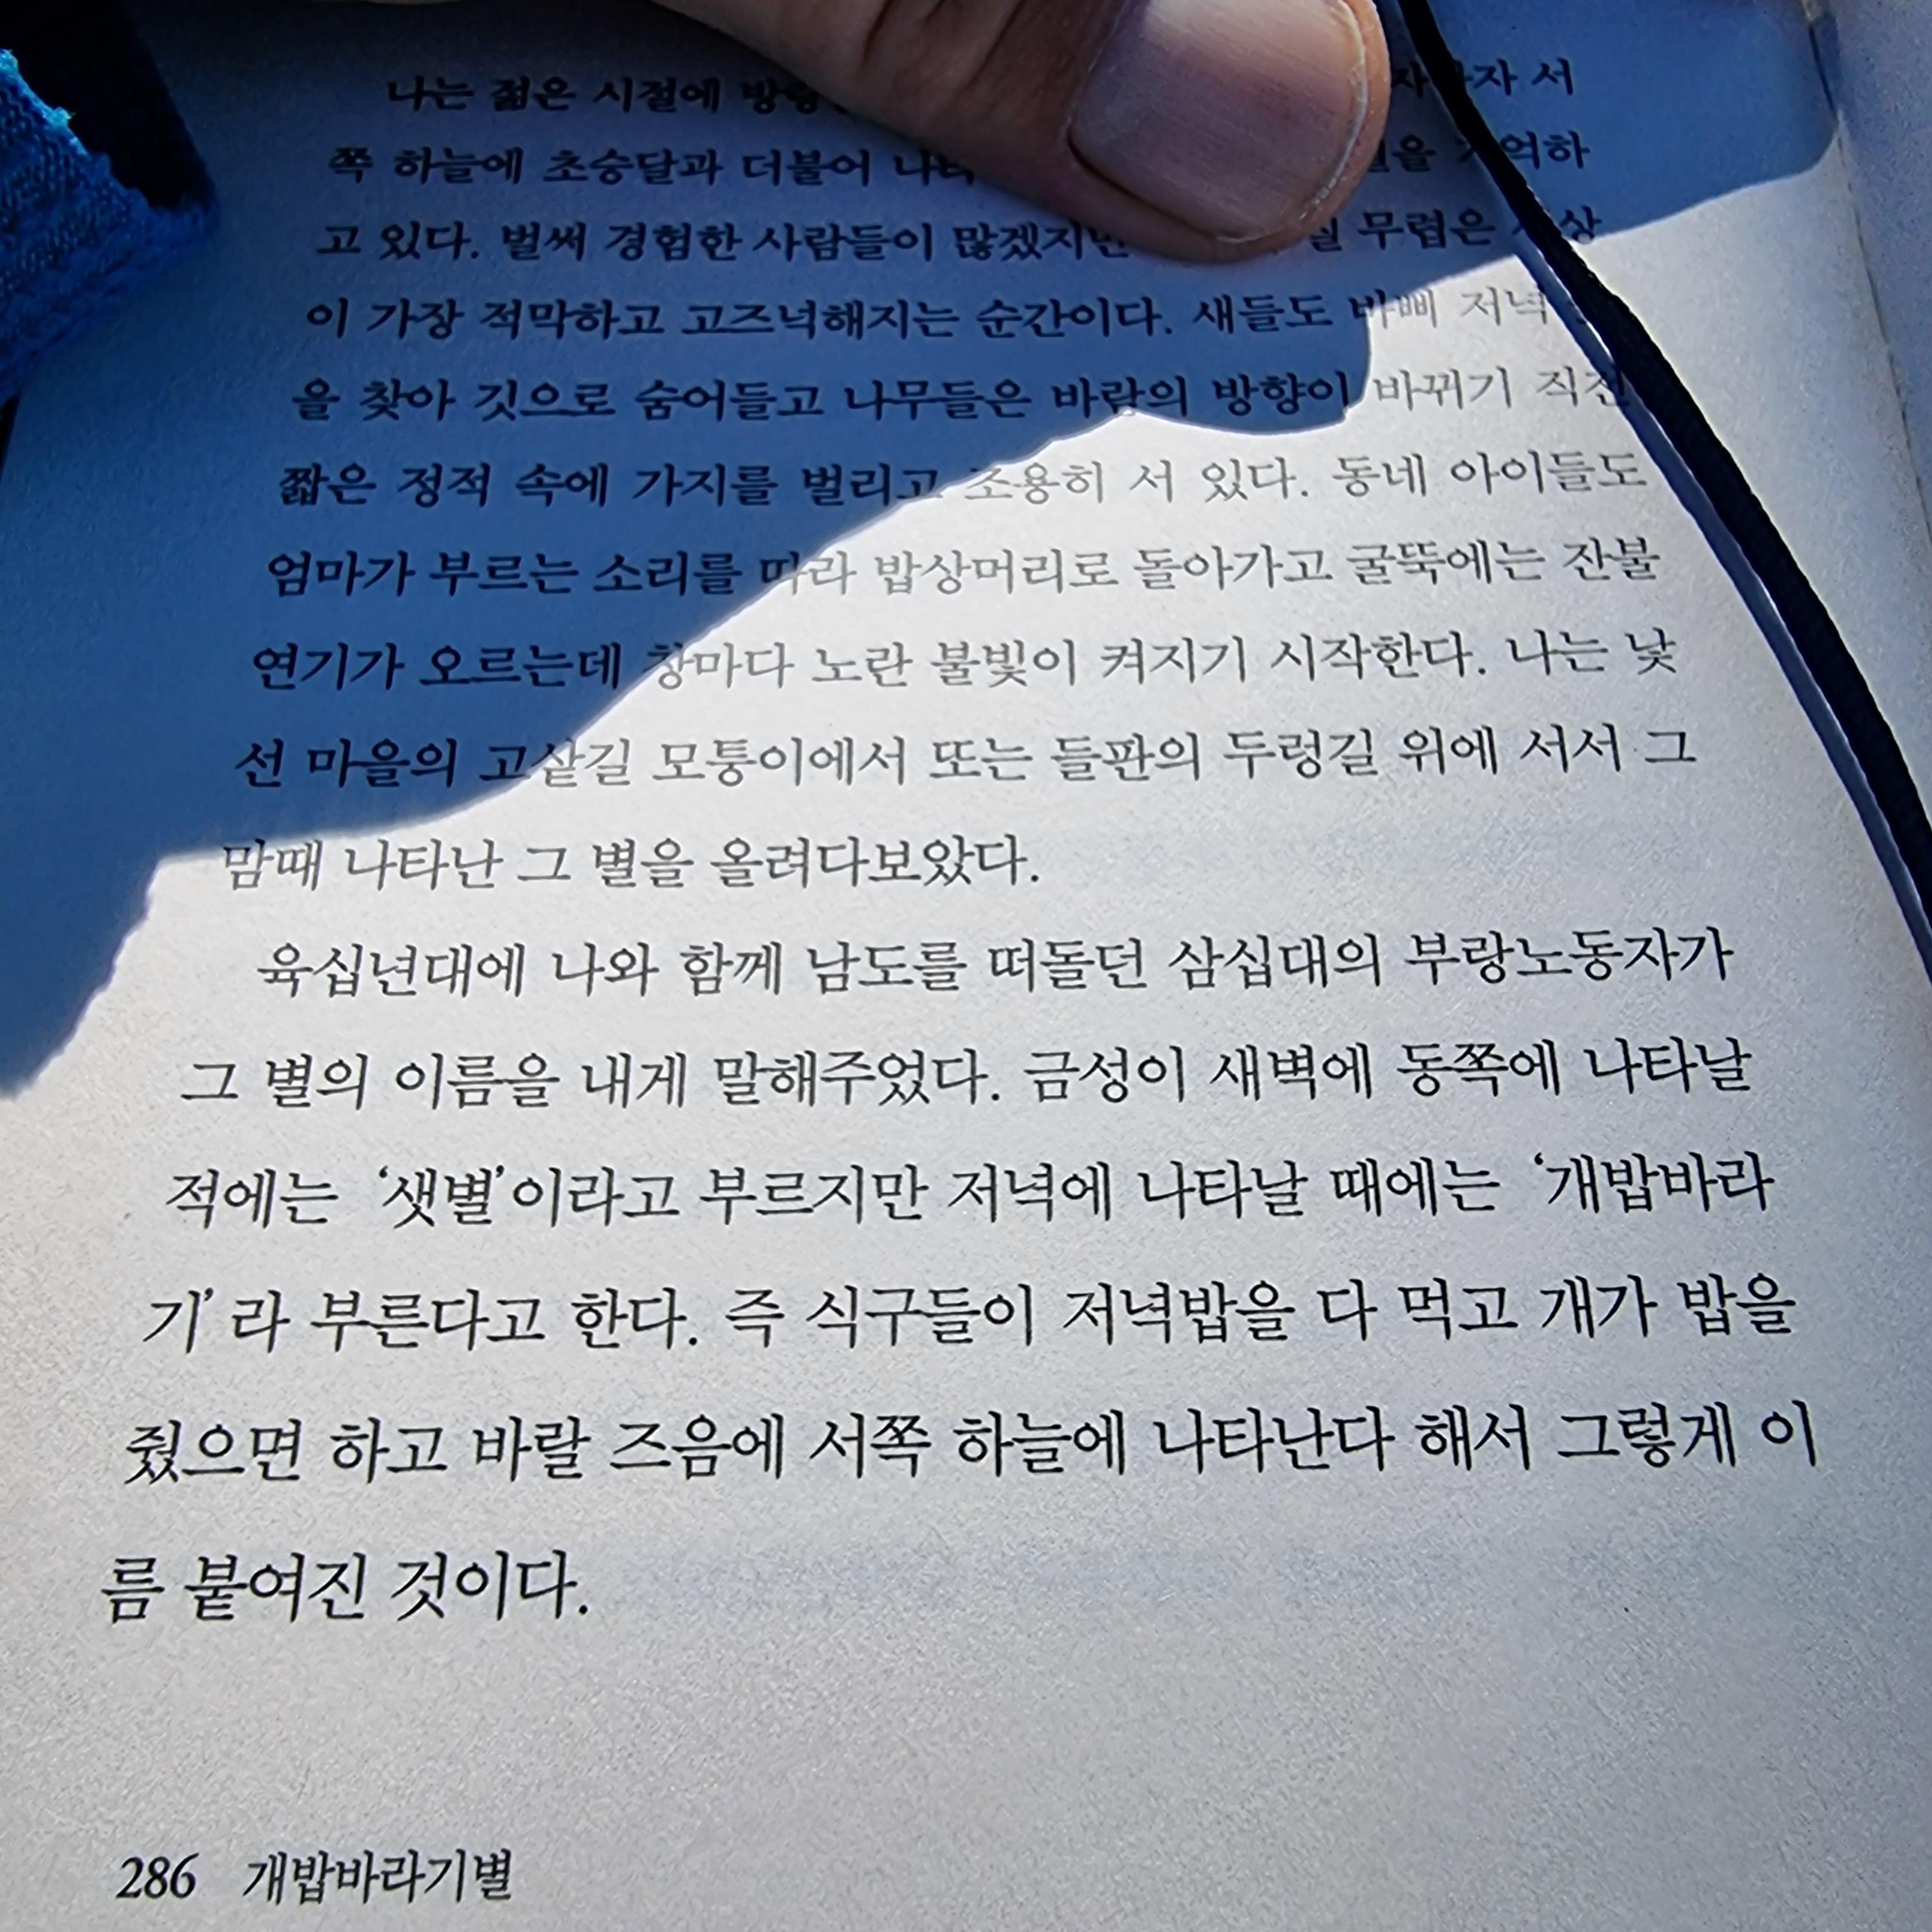 나는 젊은 시절에 서
쪽 하늘에 초승달과 더불어
고 있다. 벌써 경험한 사람들이 무렵은
이 가장 적막하고 고즈넉해지는 순간이다. 새들도 바삐
을 찾아 깃으로 숨어들고 나무들은 바람의 방향이 바뀌기 직전
짧은 정적 속에 가지를 벌리고 조용히 서 있다. 동네 아이들도
엄마가 부르는 소리를 따라 밥상머리로 돌아가고 굴뚝에는 잔불
연기가 오르는데 창마다 노란 불빛이 켜지기 시작한다. 나는 낯
선 마을의 고샅길 모퉁이에서 또는 들판의 두렁길 위에 서서 그
맘때 나타난 그 별을 올려다보았다.
육십년대에 나와 함께 남도를 떠돌던 삼십대의 부랑노동자가
그 별의 이름을 내게 말해주었다. 금성이 새벽에 동쪽에 나타날
적에는 ‘샛별’이라고 부르지만 저녁에 나타날 때에는 ‘개밥바라
기’라 부른다고 한다. 즉 식구들이 저녁밥을 다 먹고 개가 밥을
줬으면 하고 바랄 즈음에 서쪽 하늘에 나타난다 해서 그렇게 이
름 붙여진 것이다.
286 개밥바라기별